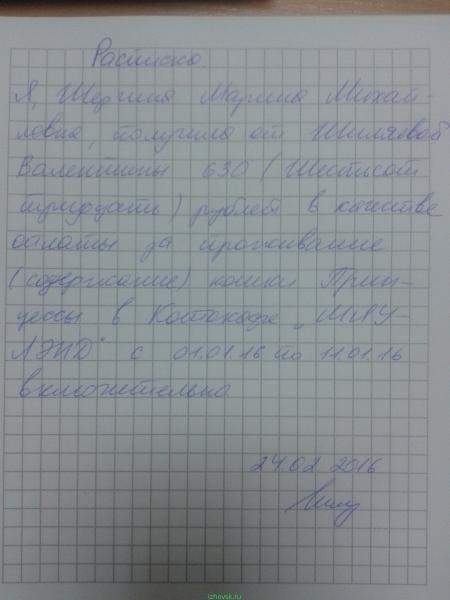 Расписка
Я, Щедрина Марина Михай-
ловна, получила от Шиляевой
Валентины 630 (Шестьсот
тридцать) рублей в качестве
оплаты за проживание
(содержание) кошки Прин-
цессы в Котокафе „МяУ-
ЛЭНД" с 01.01.16 по 11.01.16
включительно
24.02.2016
izhevsk.ru